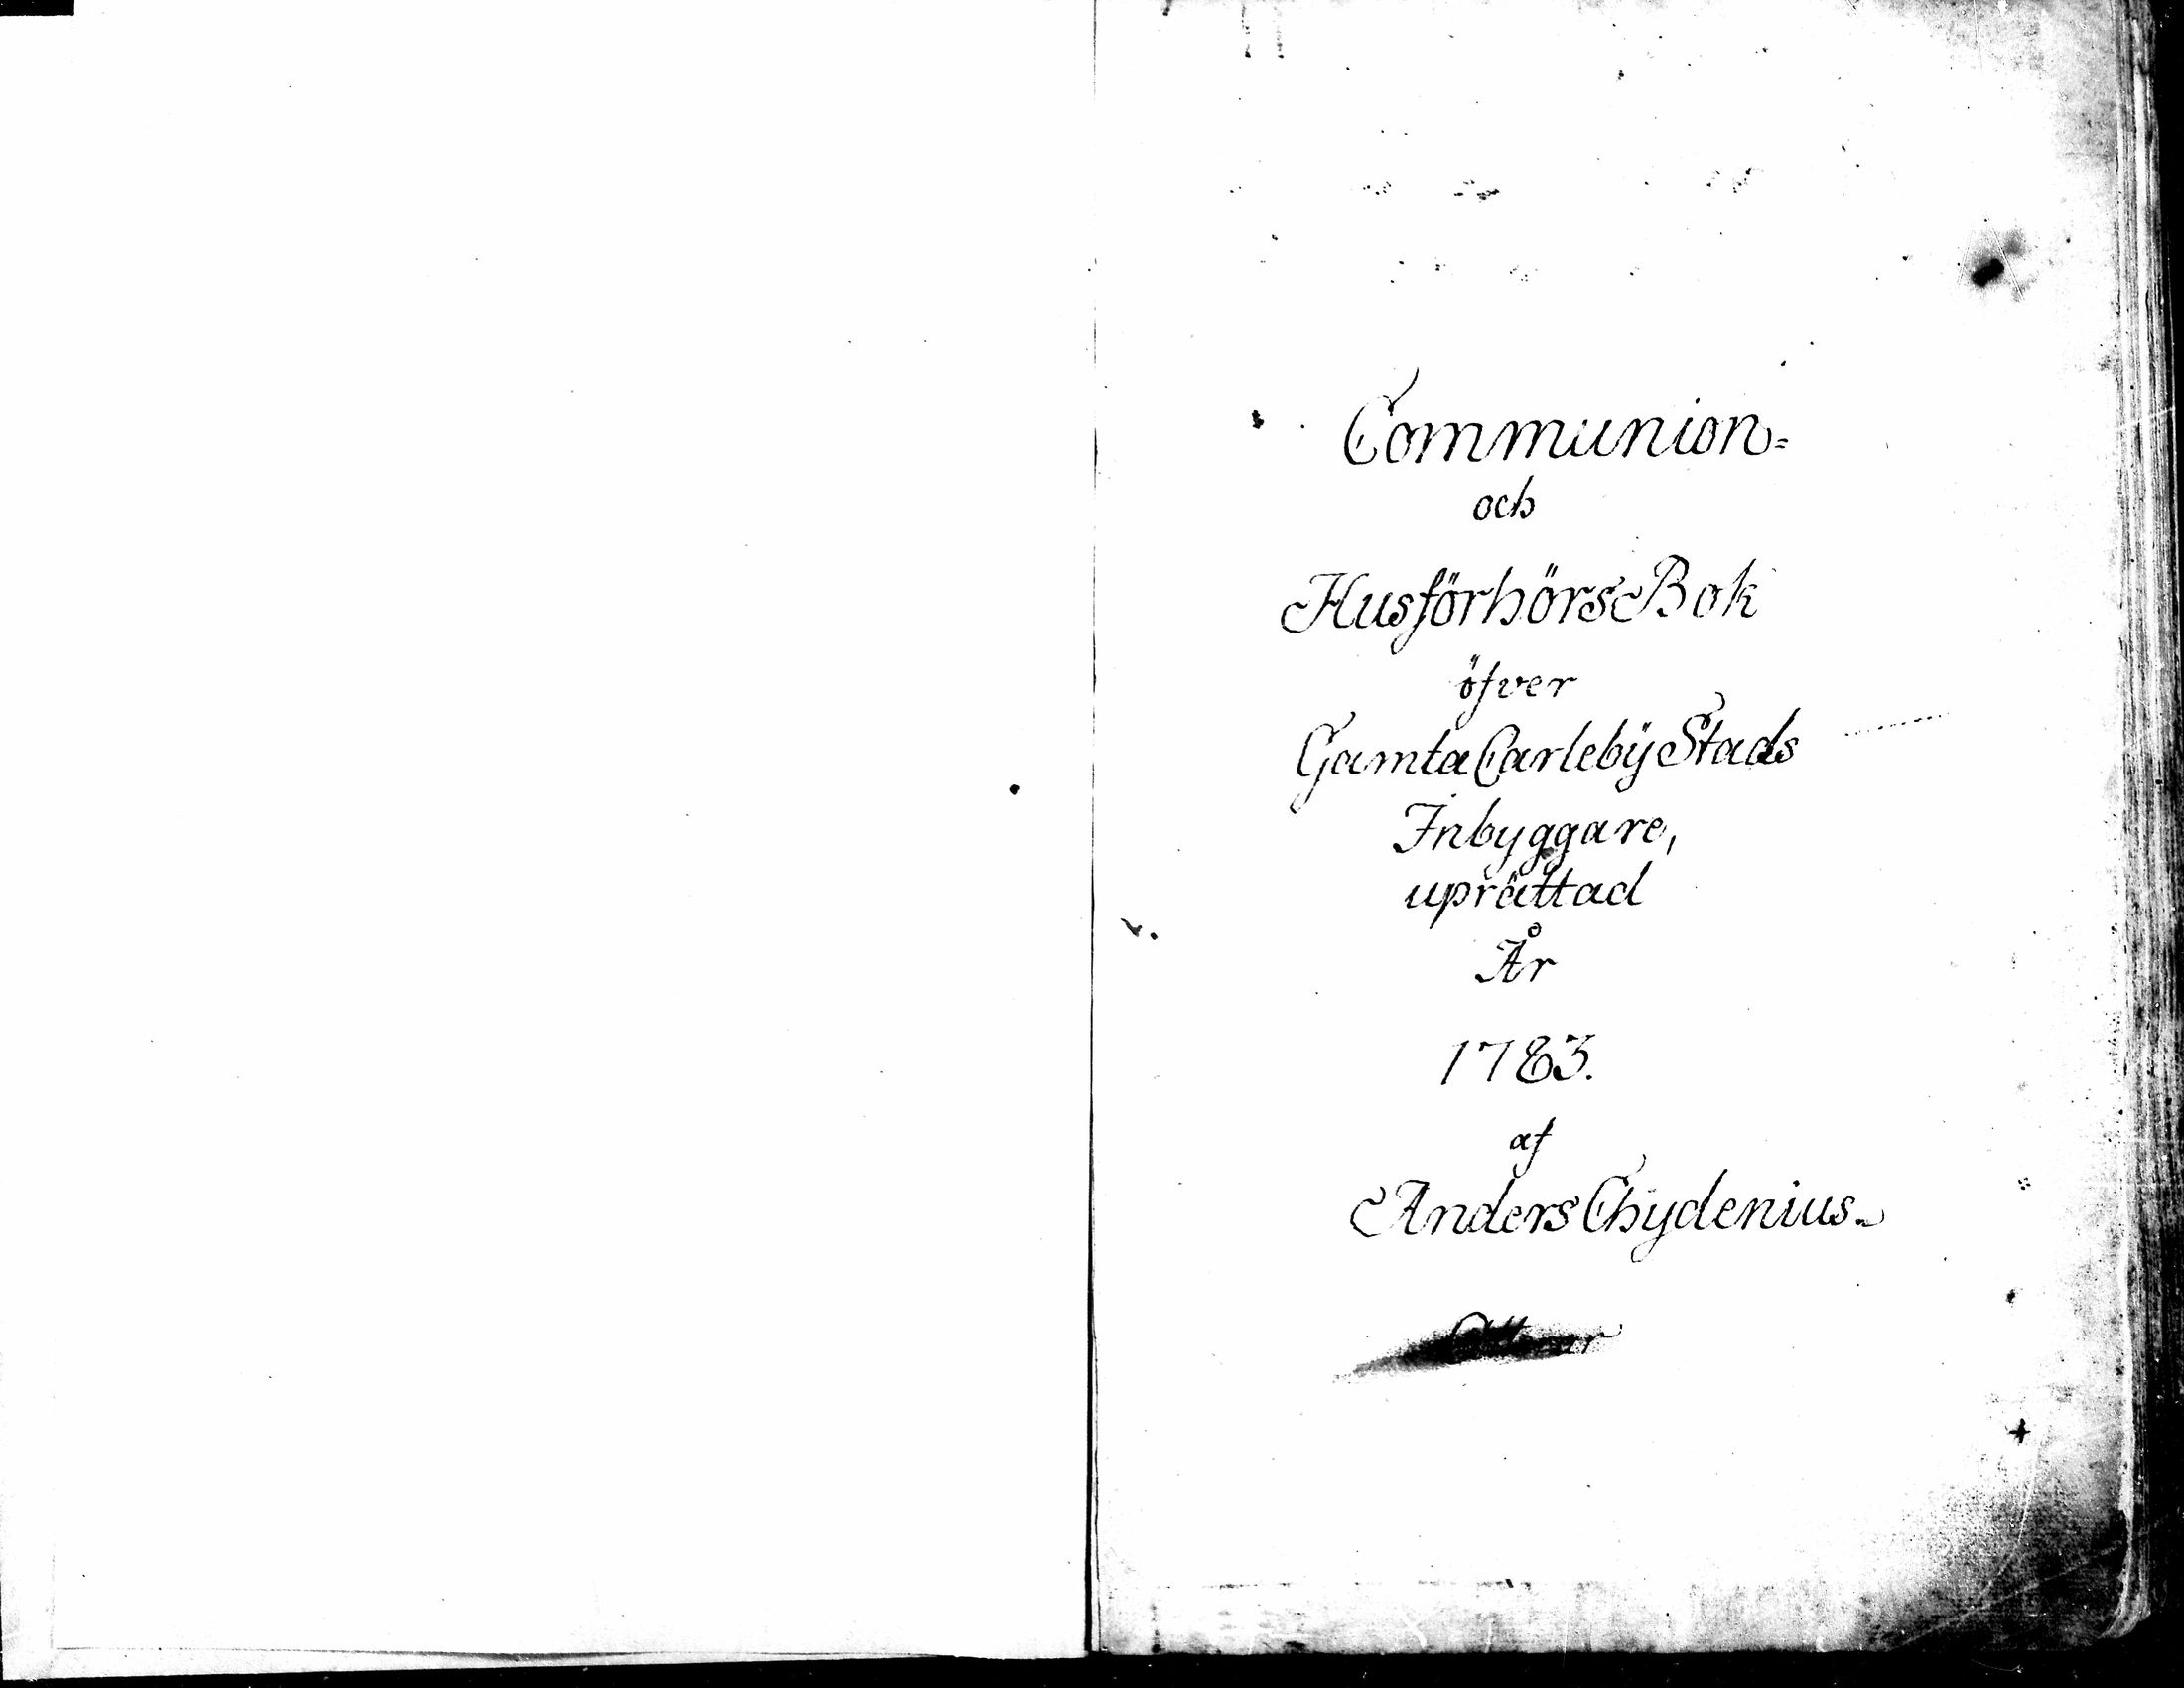 Communion=
och
Husförhörs Bok
öfver
Gamla Carlebÿ Stads
Inbyggare,
uprättad
År
1783.
af
Anders Chydenius.